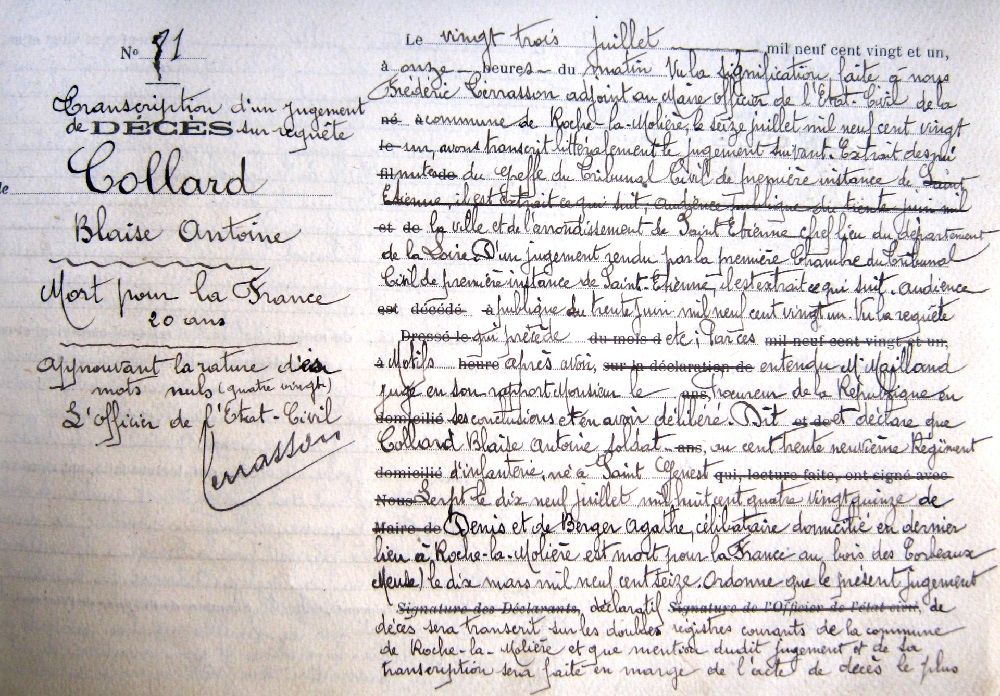 N° 71
Transcription d'un jugement
de DÉCÈS sur requête
Collard
Blaise Antoine
Mort pour la France
20 ans
Approuvant la rature de
mots nuls (quatre vingt)
L'officier de l'Etat-Civil
Cerrasson
Le vingt trois juillet mil neuf cent vingt et un,
à onze heures du matin Vu la signification, faite à nous
Frédéric Cerrasson adjoint au Maire officier de l'Etat-Civil de la
né à commune de Roche-la-Molière, le seize juillet mil neuf cent vingt
le un, avons transcrit littéralement le jugement suivant. Extrait des mi
fil nutes de du Greffe du Tribunal Civil de première instance de Saint
Etienne, il est extrait ce qui suit. Audience publique du trente juin mil
et de la ville et de l'arrondissement de Saint Etienne chef lieu du département
de la Loire. D'un jugement rendu par la première Chambre du Tribunal
Civil de première instance de Saint-Etienne, il est extrait ce qui suit. Audience
est décédé publique du trente Juin mil neuf cent vingt un. Vu la requête
Dressé le qui précède du mois d etc; Par ces mil neuf cent vingt et un,
à Motifs heure après avoir, sur la déclaration de entendu M. Mailland
juge en son rapport Monsieur le ans, Procureur de la République en
domicilié ses conclusions et en avoir délibéré. Dit et de et déclare que
Collard Blaise Antoine soldat ans, au cent trente neuvième Régiment
domicilié d'infanterie, né à Saint Genest qui, lecture faite, ont signé avec
Nous Lerpt le dix neuf juillet mil huit cent quatre vingt quinze de
Maire de Denis et de Berger Agathe, célibataire domicilié en dernier
lieu à Roche-la-Molière est mort pour la France au bois des Corbeaux
(Meuse) le dix mars mil neuf cent seize. Ordonne que le présent jugement
Signature des Déclarants, déclaratif Signature de l'Officier de l'état civil, de
décès sera transcrit sur les doubles registres courants de la commune
de Roche-la-Molière et que mention dudit jugement et de sa
transcription sera faite en marge de l'acte de décès le plus